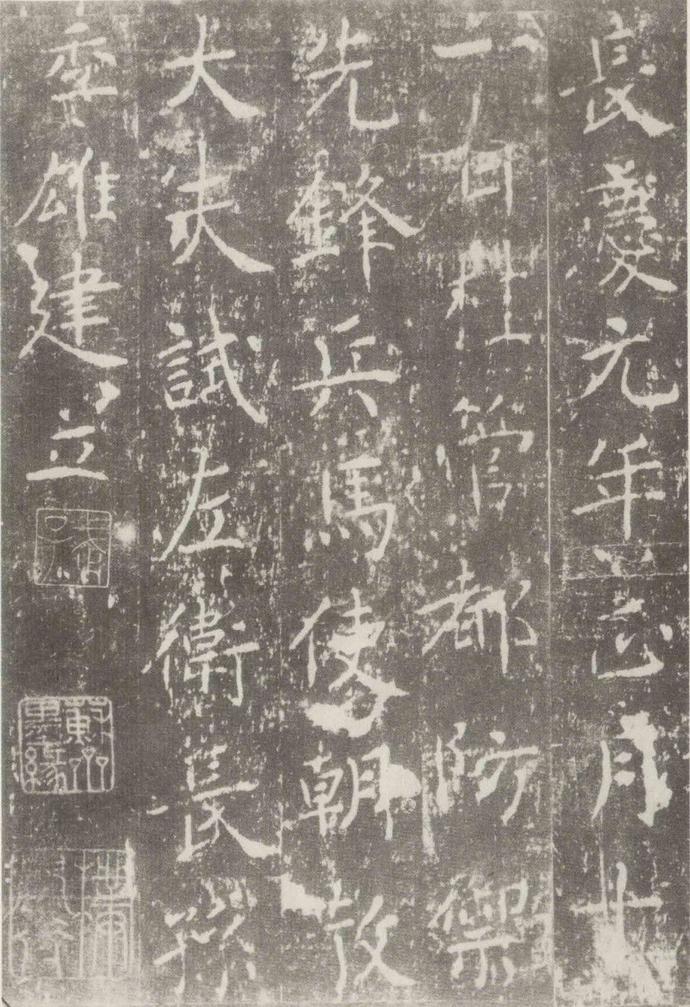 長慶元年正月十
一日桂管都防禦
先鋒兵馬使朝散
大夫試左衛長孫
季雄建立